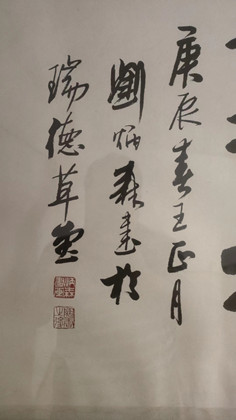 庚辰春王正月
刘炳森书於
瑞德草堂